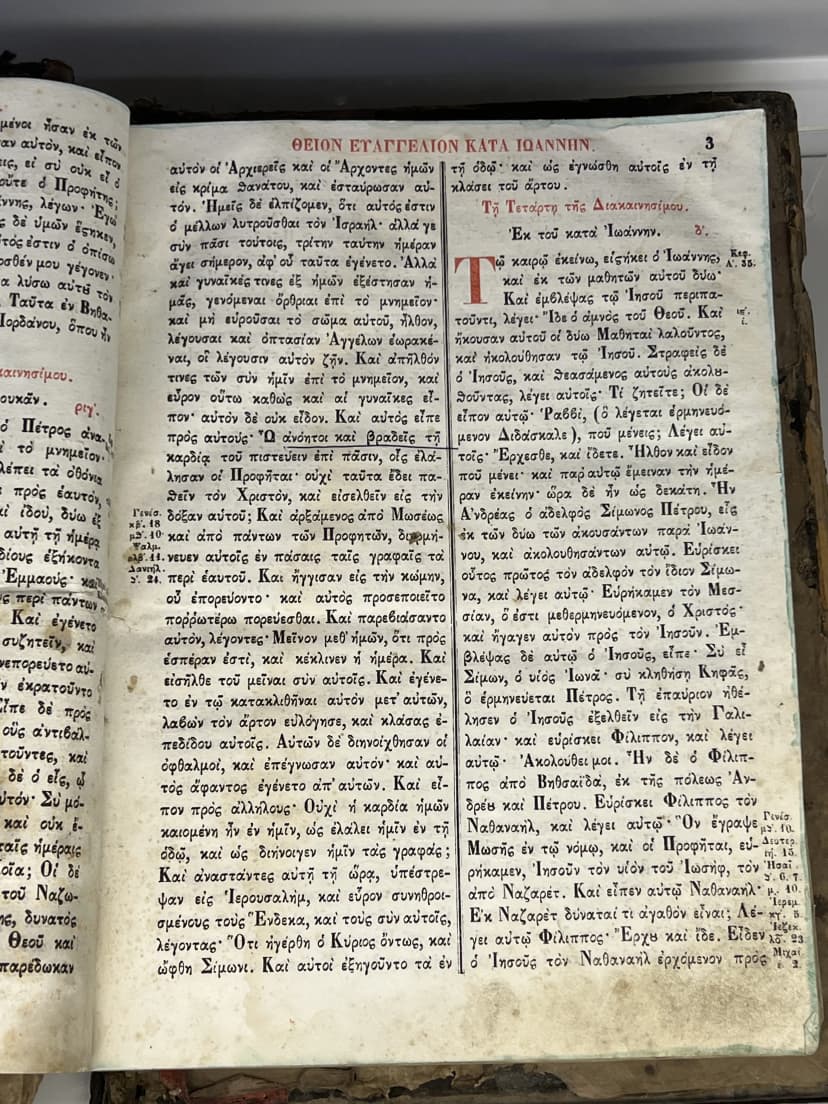 μένοι ἦσαν ἐκ τῶν
σαν αὐτὸν, καὶ εἶπον
εἰ σὺ οὐκ εἶ ὁ
οὔτε ὁ Προφήτης;
λέγων· Ἐγὼ
δὲ ὑμῶν ἕστηκεν,
τός ἐστιν ὁ ὀπίσω
μου γέγονεν·
λύσω αὐτȣ τὸν
Ταῦτα ἐν Βηθα-
Ἰορδάνου, ὅπου ἦν
καινησίμου.
ουκᾶν. ριγʹ.
ὁ Πέτρος ἀνα-
τὸ μνημεῖον·
λέπει τὰ ὀθόνια
πρὸς ἑαυτὸν,
ἰδοὺ, δύω ἐξ
αὐτῇ τῇ ἡμέρᾳ
δίους ἑξήκοντα
Ἐμμαούς· καὶ
περὶ πάντων
Καὶ ἐγένετο
συζητεῖν, καὶ
νεπορεύετο αὐ-
ἐκρατοῦντο
Εἶπε δὲ πρὸς
οὓς ἀντιβάλ-
τοῦντες, καὶ
δὲ ὁ εἷς, ᾧ
αὐτόν· Σὺ μό-
καὶ οὐκ ἔ-
ταῖς ἡμέραις
οἷα; Οἱ δὲ
τοῦ Ναζω-
δυνατὸς
Θεοῦ καὶ
παρέδωκαν
ΘΕΙΟΝ ΕΥΑΓΓΕΛΙΟΝ ΚΑΤΑ ΙΩΑΝΝΗΝ. 3
αὐτὸν οἱ Ἀρχιερεῖς καὶ οἱ Ἄρχοντες ἡμῶν
εἰς κρίμα θανάτου, καὶ ἐσταύρωσαν αὐ-
τόν. Ἡμεῖς δὲ ἐλπίζομεν, ὅτι αὐτός ἐστιν
ὁ μέλλων λυτροῦσθαι τὸν Ἰσραήλ· ἀλλά γε
σὺν πᾶσι τούτοις, τρίτην ταύτην ἡμέραν
ἄγει σήμερον, ἀφ' οὗ ταῦτα ἐγένετο. Ἀλλὰ
καὶ γυναῖκές τινες ἐξ ἡμῶν ἐξέστησαν ἡ-
μᾶς, γενόμεναι ὄρθριαι ἐπὶ τὸ μνημεῖον·
καὶ μὴ εὑροῦσαι τὸ σῶμα αὐτοῦ, ἦλθον,
λέγουσαι καὶ ὀπτασίαν Ἀγγέλων ἑωρακέ-
ναι, οἳ λέγουσιν αὐτὸν ζῆν. Καὶ ἀπῆλθόν
τινες τῶν σὺν ἡμῖν ἐπὶ τὸ μνημεῖον, καὶ
εὗρον οὕτω καθὼς καὶ αἱ γυναῖκες εἶ-
πον· αὐτὸν δὲ οὐκ εἶδον. Καὶ αὐτὸς εἶπε
πρὸς αὐτούς· Ὦ ἀνόητοι καὶ βραδεῖς τῇ
καρδίᾳ τοῦ πιστεύειν ἐπὶ πᾶσιν, οἷς ἐλά-
λησαν οἱ Προφῆται· οὐχὶ ταῦτα ἔδει πα-
θεῖν τὸν Χριστὸν, καὶ εἰσελθεῖν εἰς τὴν
δόξαν αὐτοῦ; Καὶ ἀρξάμενος ἀπὸ Μωσέως
καὶ ἀπὸ πάντων τῶν Προφητῶν, διερμή-
νευεν αὐτοῖς ἐν πάσαις ταῖς γραφαῖς τὰ
περὶ ἑαυτοῦ. Καὶ ἤγγισαν εἰς τὴν κώμην,
οὗ ἐπορεύοντο· καὶ αὐτὸς προσεποιεῖτο
πορρωτέρω πορεύεσθαι. Καὶ παρεβιάσαντο
αὐτὸν, λέγοντες· Μεῖνον μεθ' ἡμῶν, ὅτι πρὸς
ἑσπέραν ἐστὶ, καὶ κέκλινεν ἡ ἡμέρα. Καὶ
εἰσῆλθε τοῦ μεῖναι σὺν αὐτοῖς. Καὶ ἐγένε-
το ἐν τῷ κατακλιθῆναι αὐτὸν μετ' αὐτῶν,
λαβὼν τὸν ἄρτον εὐλόγησε, καὶ κλάσας ἐ-
πεδίδου αὐτοῖς. Αὐτῶν δὲ διηνοίχθησαν οἱ
ὀφθαλμοὶ, καὶ ἐπέγνωσαν αὐτόν· καὶ αὐ-
τὸς ἄφαντος ἐγένετο ἀπ' αὐτῶν. Καὶ εἶ-
πον πρὸς ἀλλήλους· Οὐχὶ ἡ καρδία ἡμῶν
καιομένη ἦν ἐν ἡμῖν, ὡς ἐλάλει ἡμῖν ἐν τῇ
ὁδῷ, καὶ ὡς διήνοιγεν ἡμῖν τὰς γραφάς;
Καὶ ἀναστάντες αὐτῇ τῇ ὥρᾳ, ὑπέστρε-
ψαν εἰς Ἱερουσαλὴμ, καὶ εὗρον συνηθροι-
σμένους τοὺς Ἕνδεκα, καὶ τοὺς σὺν αὐτοῖς,
λέγοντας· Ὅτι ἠγέρθη ὁ Κύριος ὄντως, καὶ
ὤφθη Σίμωνι. Καὶ αὐτοὶ ἐξηγοῦντο τὰ ἐν
Γενίσ.
κβʹ. 18
μθʹ. 10
Ψαλμ.
ρλβʹ. 11.
Δανιήλ.
θʹ. 24.
τῇ ὁδῷ· καὶ ὡς ἐγνώσθη αὐτοῖς ἐν τῇ
κλάσει τοῦ ἄρτου.
Τῇ Τετάρτῃ τῆς Διακαινησίμου.
Ἐκ τοῦ κατὰ Ἰωάννην. δʹ.
Τῷ καιρῷ ἐκείνῳ, εἱστήκει ὁ Ἰωάννης,
καὶ ἐκ τῶν μαθητῶν αὐτοῦ δύω·
Καὶ ἐμβλέψας τῷ Ἰησοῦ περιπα-
τοῦντι, λέγει· Ἴδε ὁ ἀμνὸς τοῦ Θεοῦ. Καὶ
ἤκουσαν αὐτοῦ οἱ δύω Μαθηταὶ λαλοῦντος,
καὶ ἠκολούθησαν τῷ Ἰησοῦ. Στραφεὶς δὲ
ὁ Ἰησοῦς, καὶ θεασάμενος αὐτοὺς ἀκολυ-
θοῦντας, λέγει αὐτοῖς· Τί ζητεῖτε; Οἱ δὲ
εἶπον αὐτῷ· Ῥαββὶ, (ὃ λέγεται ἑρμηνευό-
μενον Διδάσκαλε), ποῦ μένεις; Λέγει αὐ-
τοῖς· Ἔρχεσθε, καὶ ἴδετε. Ἦλθον καὶ εἶδον
ποῦ μένει· καὶ παρ' αὐτῷ ἔμειναν τὴν ἡμέ-
ραν ἐκείνην· ὥρα δὲ ἦν ὡς δεκάτη. Ἦν
Ἀνδρέας ὁ ἀδελφὸς Σίμωνος Πέτρου, εἷς
ἐκ τῶν δύω τῶν ἀκουσάντων παρὰ Ἰωάν-
νου, καὶ ἀκολουθησάντων αὐτῷ. Εὑρίσκει
οὗτος πρῶτος τὸν ἀδελφὸν τὸν ἴδιον Σίμω-
να, καὶ λέγει αὐτῷ· Εὑρήκαμεν τὸν Μεσ-
σίαν, ὅ ἐστι μεθερμηνευόμενον, ὁ Χριστός·
καὶ ἤγαγεν αὐτὸν πρὸς τὸν Ἰησοῦν. Ἐμ-
βλέψας δὲ αὐτῷ ὁ Ἰησοῦς, εἶπε· Σὺ εἶ
Σίμων, ὁ υἱὸς Ἰωνᾶ· σὺ κληθήσῃ Κηφᾶς,
ὃ ἑρμηνεύεται Πέτρος. Τῇ ἐπαύριον ἠθέ-
λησεν ὁ Ἰησοῦς ἐξελθεῖν εἰς τὴν Γαλι-
λαίαν· καὶ εὑρίσκει Φίλιππον, καὶ λέγει
αὐτῷ· Ἀκολούθει μοι. Ἦν δὲ ὁ Φίλιπ-
πος ἀπὸ Βηθσαϊδὰ, ἐκ τῆς πόλεως Ἀν-
δρέȣ καὶ Πέτρου. Εὑρίσκει Φίλιππος τὸν
Ναθαναὴλ, καὶ λέγει αὐτῷ· Ὃν ἔγραψε
Μωσῆς ἐν τῷ νόμῳ, καὶ οἱ Προφῆται, εὑ-
ρήκαμεν, Ἰησοῦν τὸν υἱὸν τοῦ Ἰωσὴφ, τὸν
ἀπὸ Ναζαρέτ. Καὶ εἶπεν αὐτῷ Ναθαναήλ·
Ἐκ Ναζαρὲτ δύναταί τι ἀγαθὸν εἶναι; Λέ-
γει αὐτῷ Φίλιππος· Ἔρχȣ καὶ ἴδε. Εἶδεν
ὁ Ἰησοῦς τὸν Ναθαναὴλ ἐρχόμενον πρὸς
Κεφ.
Αʹ. 35.
Γενίσ.
μθʹ. 10.
Δευτερ.
ιηʹ. 15.
Ἡσαΐ
θʹ. 6. 7.
μʹ. 10.
Ἱερεμ.
κγʹ. 5.
Ἰεζεκ.
λδʹ. 23
Μιχαί
εʹ. 2.